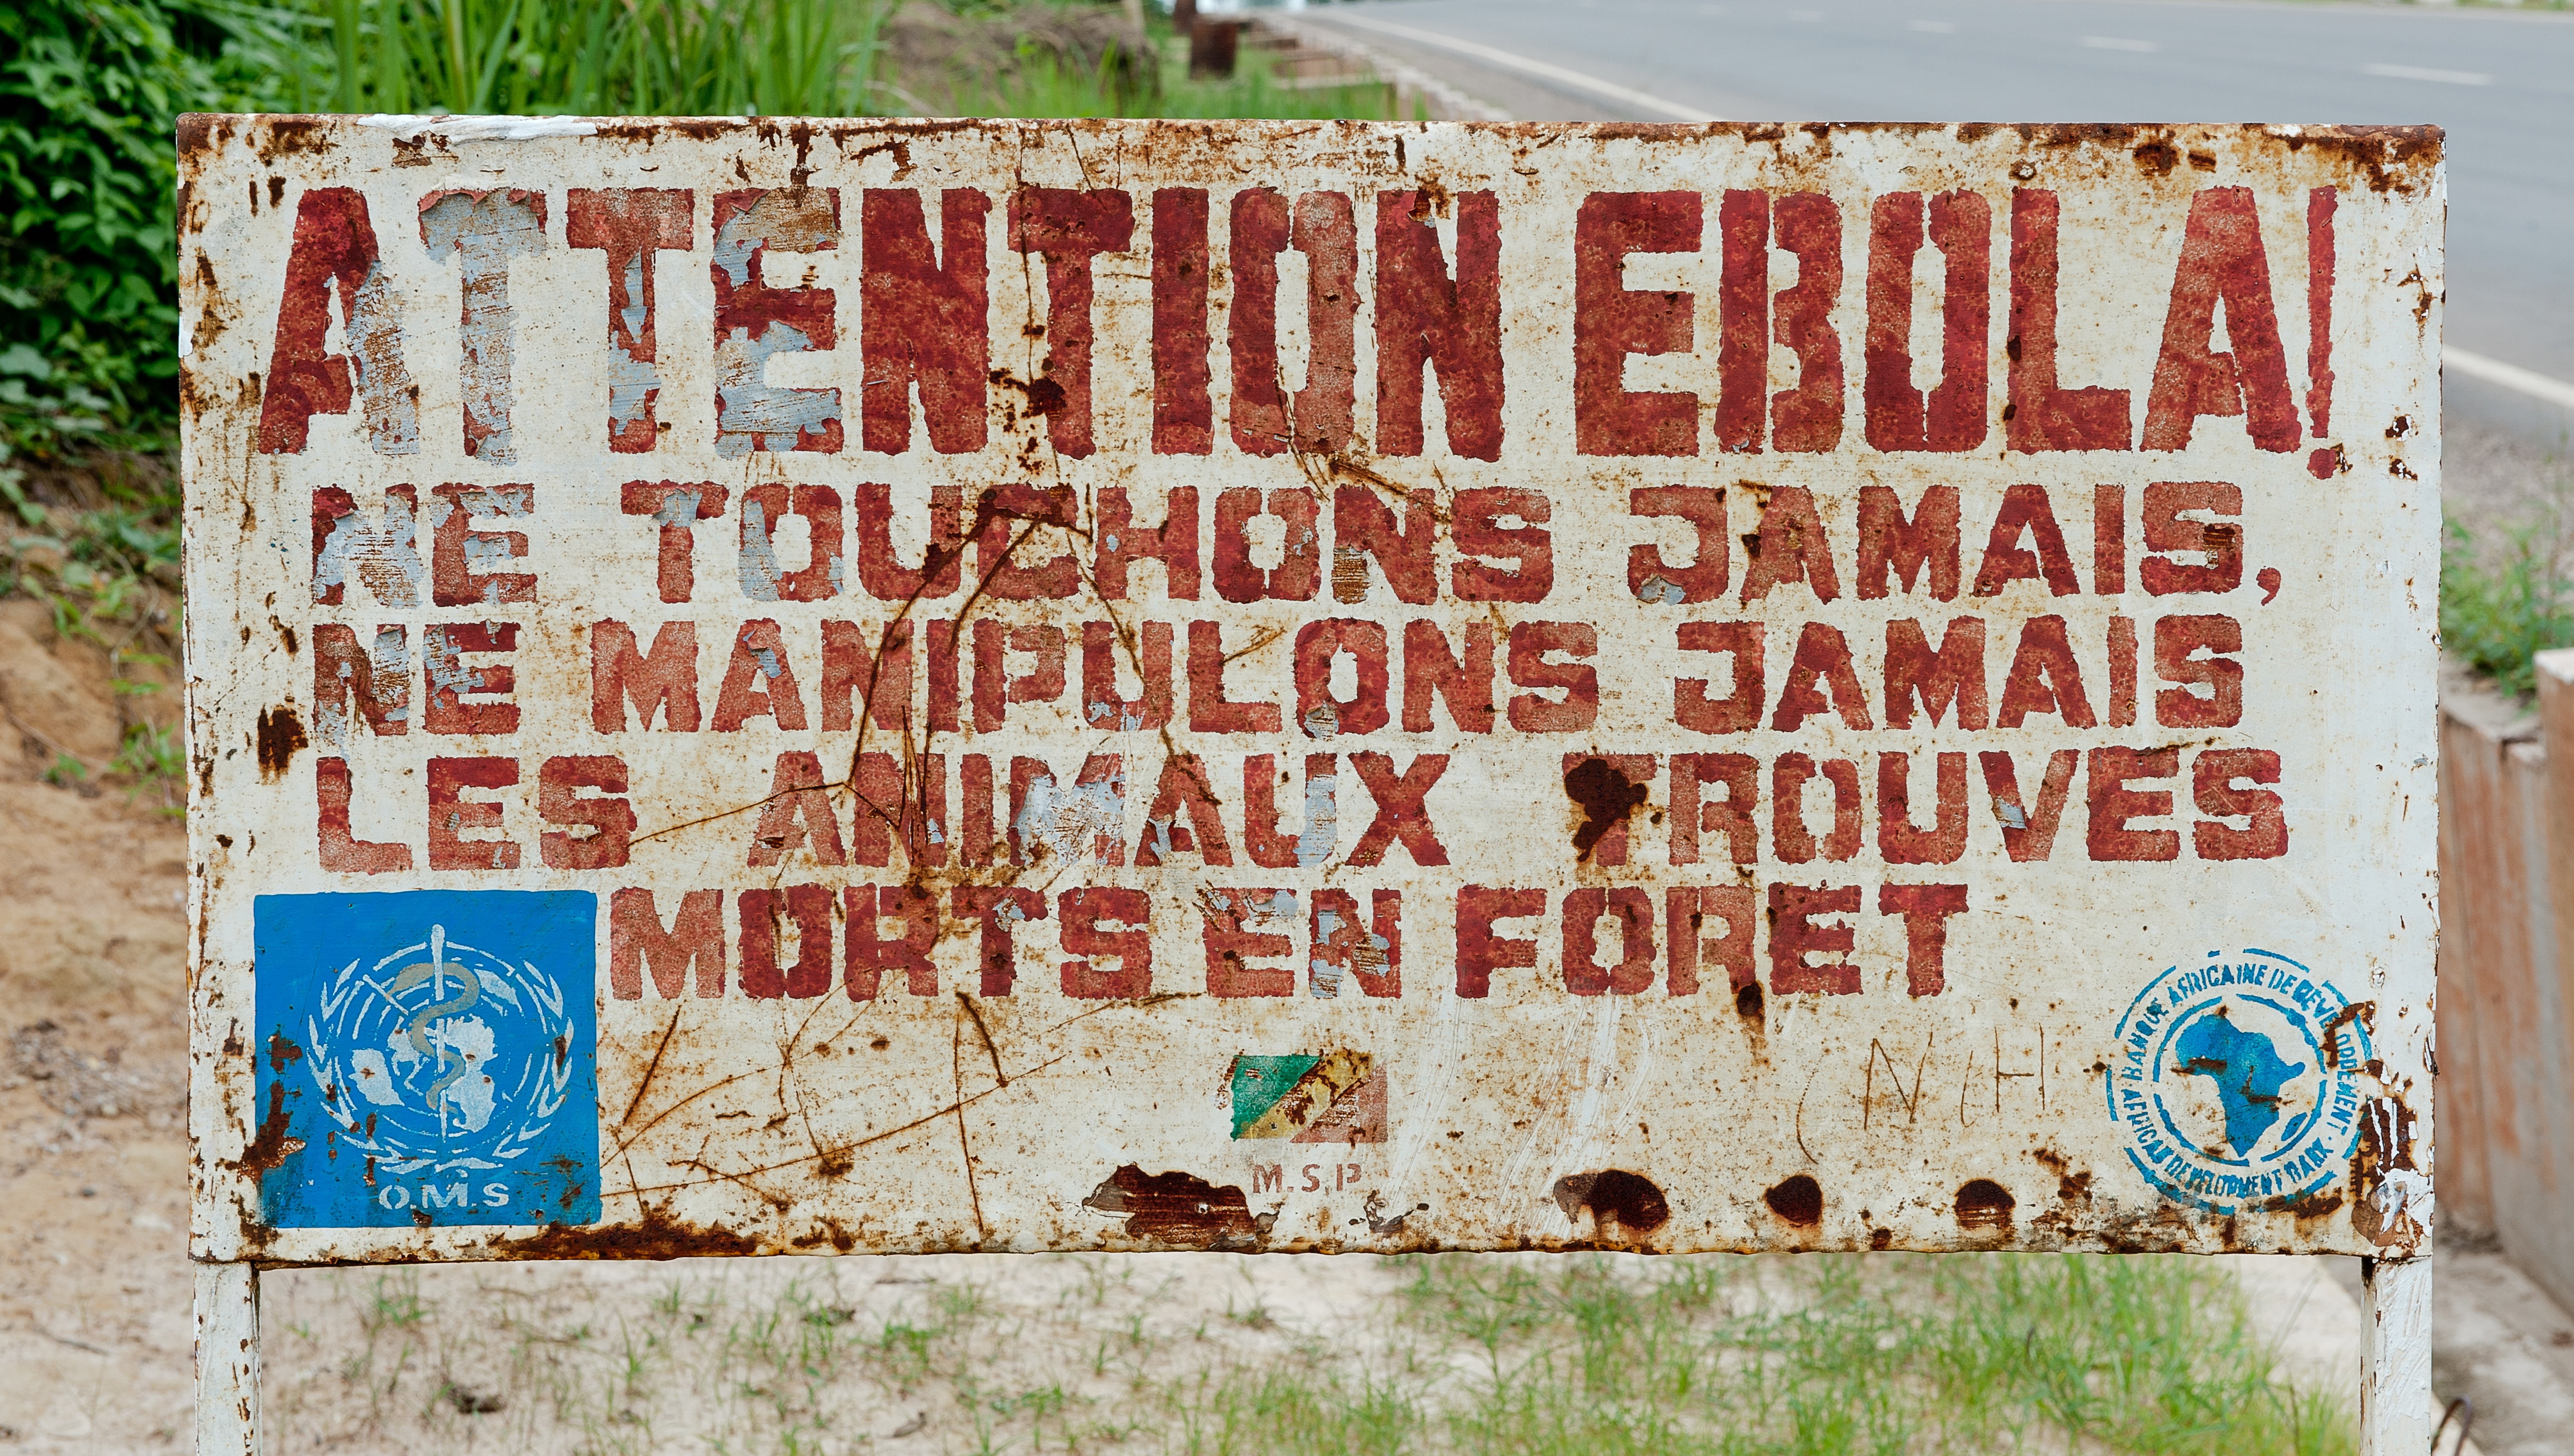 ATTENTION EBOLA!
NE TOUCHONS JAMAIS,
NE MANIPULONS JAMAIS
LES ANIMAUX TROUVES
MORTS EN FORET
O.M.S
M.S.P
BANQUE AFRICAINE DE DEVELOPPEMENT
AFRICAN DEVELOPMENT BANK